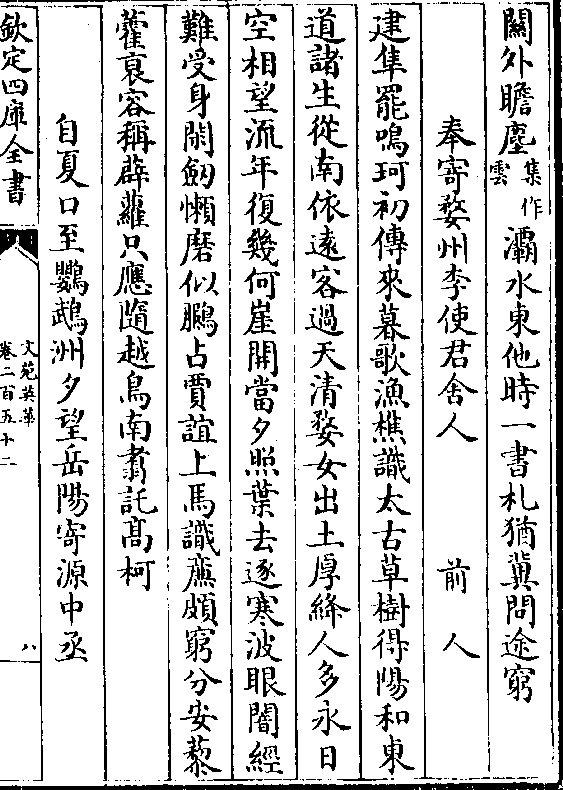 關外瞻塵集作雲灞水東他時一書札猶冀問途窮
奉寄婺州李使君舍人 前人
建隼罷鳴珂初傳來暮歌漁樵識太古草樹得陽和東
道諸生從南依遠客過天清婺女出土厚絳人多永日
空相望流年復幾何崖開當夕照葉去逐寒波眼闇經
難受身閑劒懶磨似鵩占賈誼上馬識廉頗窮分安藜
藿衰容稱薜蘿只應隨越鳥南翥託髙柯
自夏口至鸚鵡洲夕望岳陽寄源中丞
欽定四庫全書
文苑英華
卷二百五十二
八